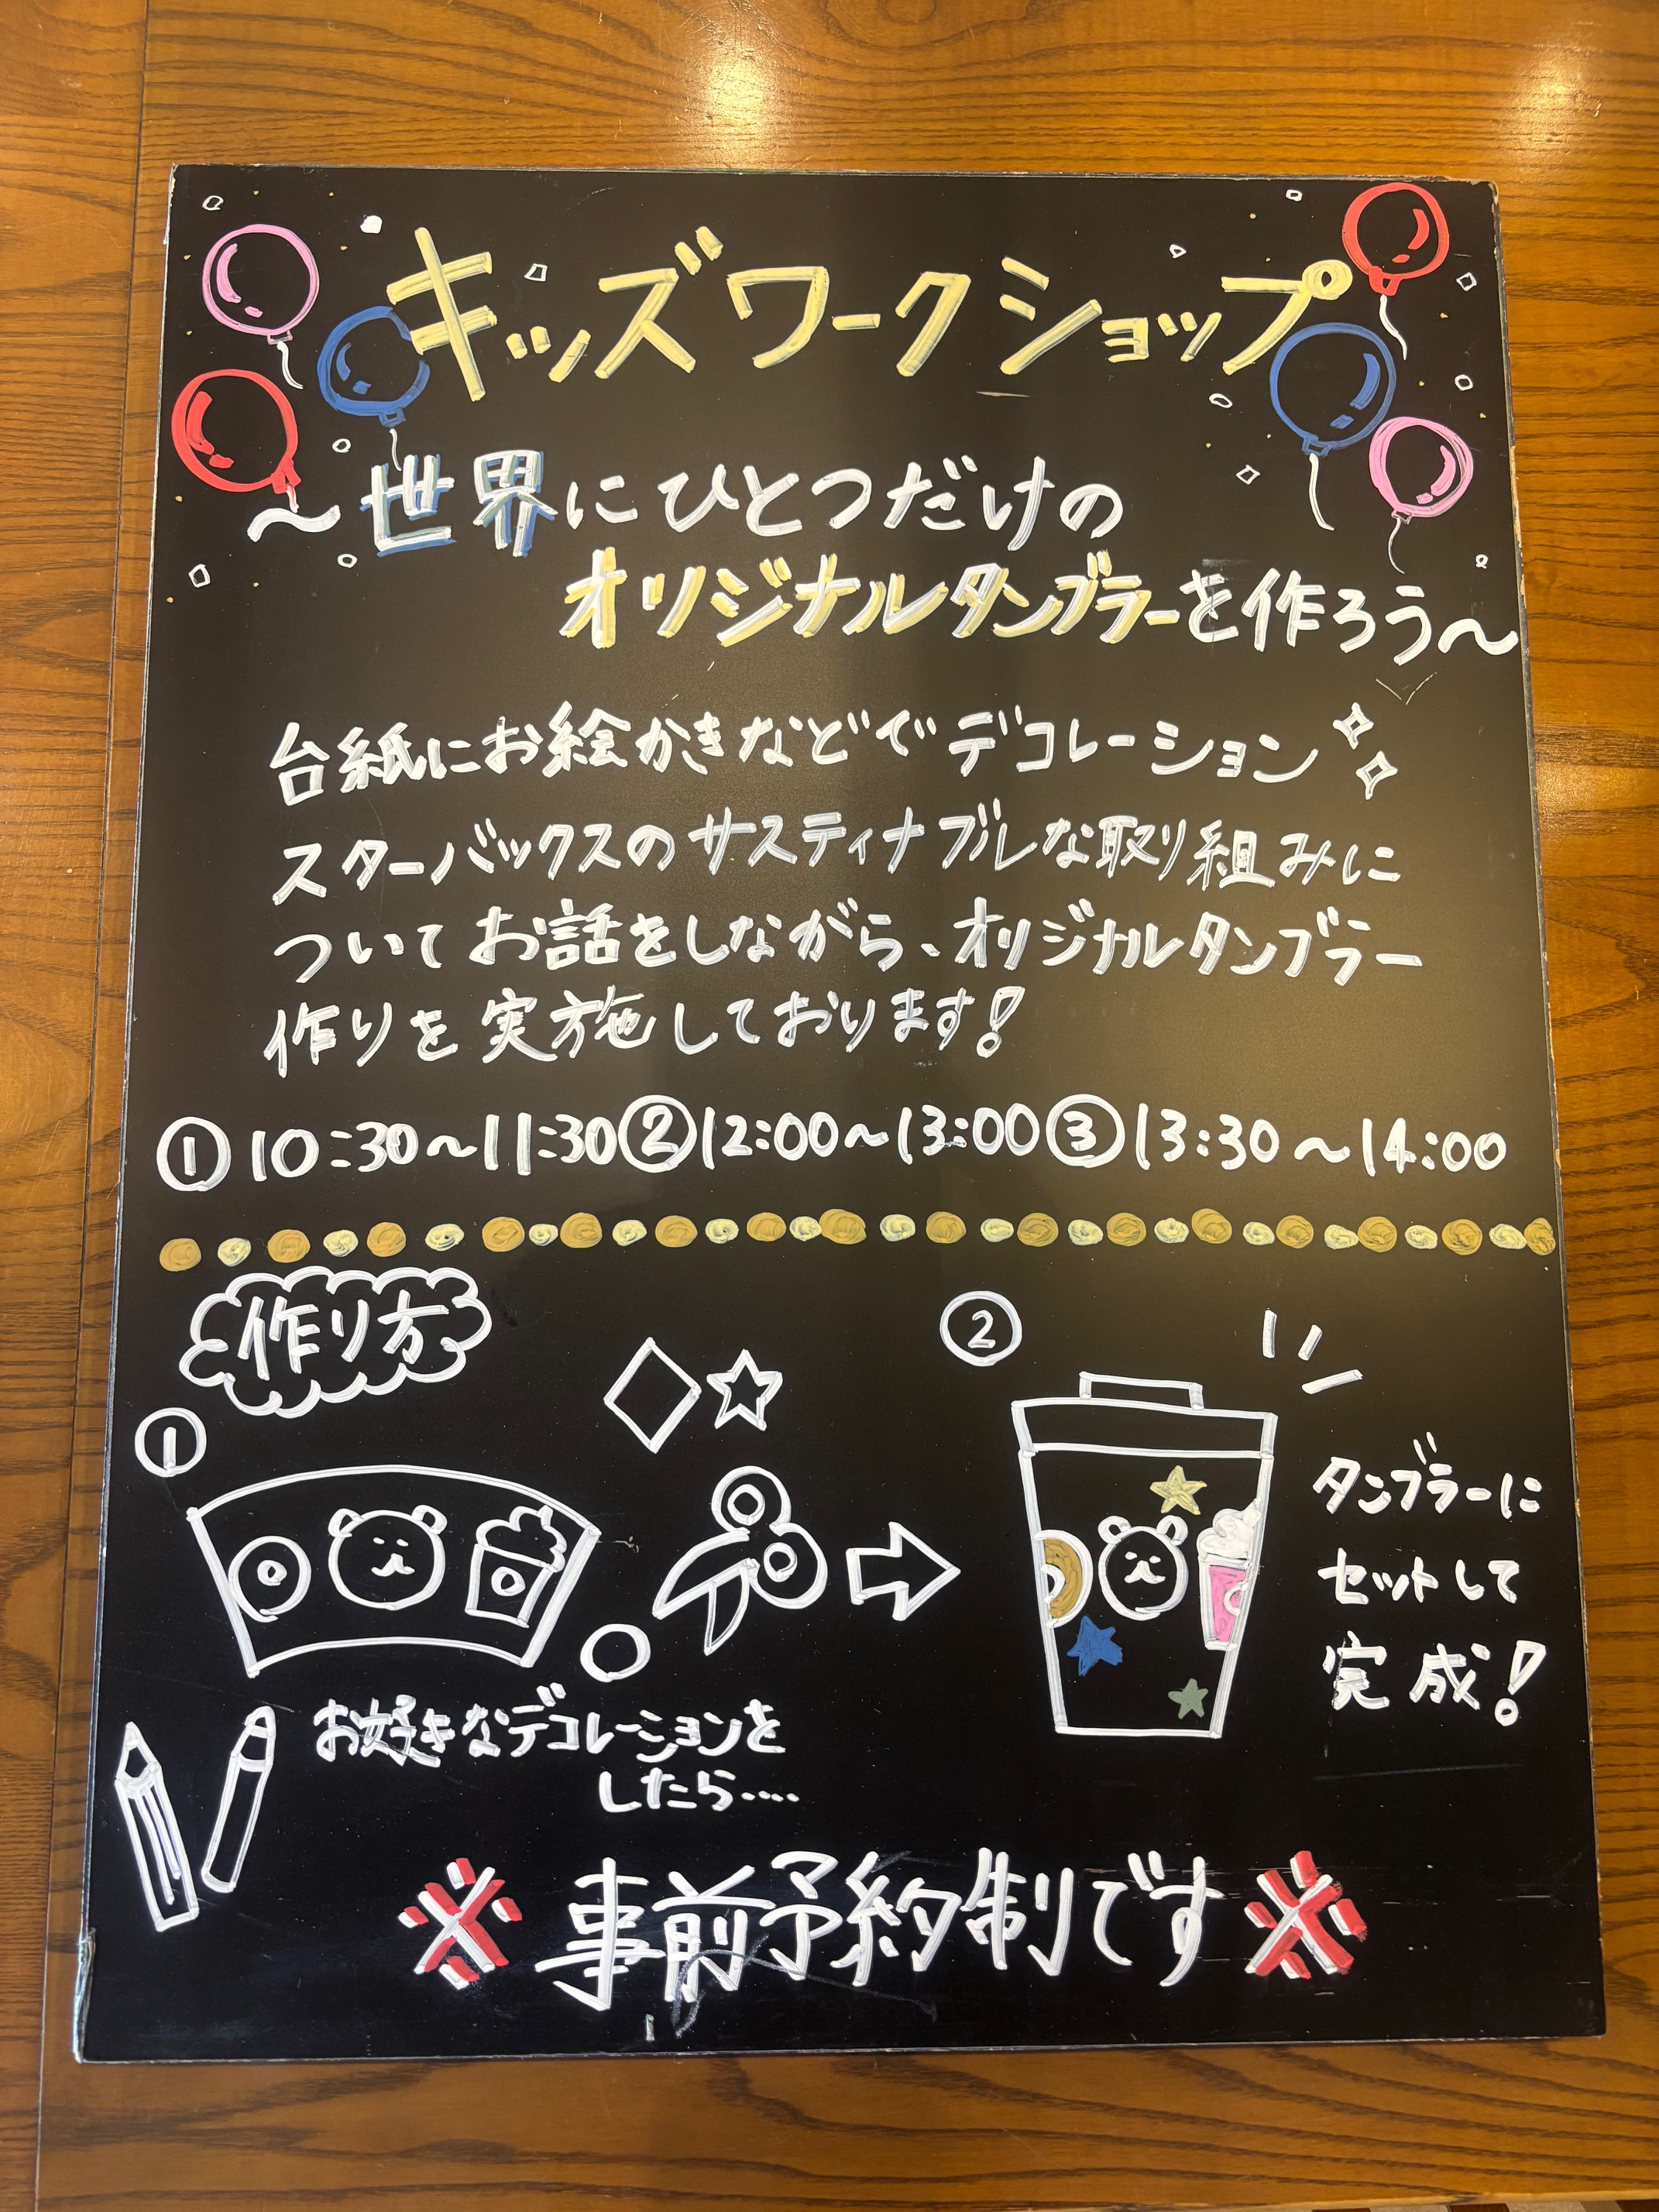 キッズワークショップ
〜世界にひとつだけの
オリジナルタンブラーを作ろう〜
台紙にお絵かきなどでデコレーション
スターバックスのサスティナブルな取り組みに
ついてお話をしながら、オリジナルタンブラー
作りを実施しております!
①10:30〜11:30②12:00〜13:00③13:30〜14:00
作り方
①
お好きなデコレーションを
したら....
②
タンブラーに
セットして
完成!
※事前予約制です※